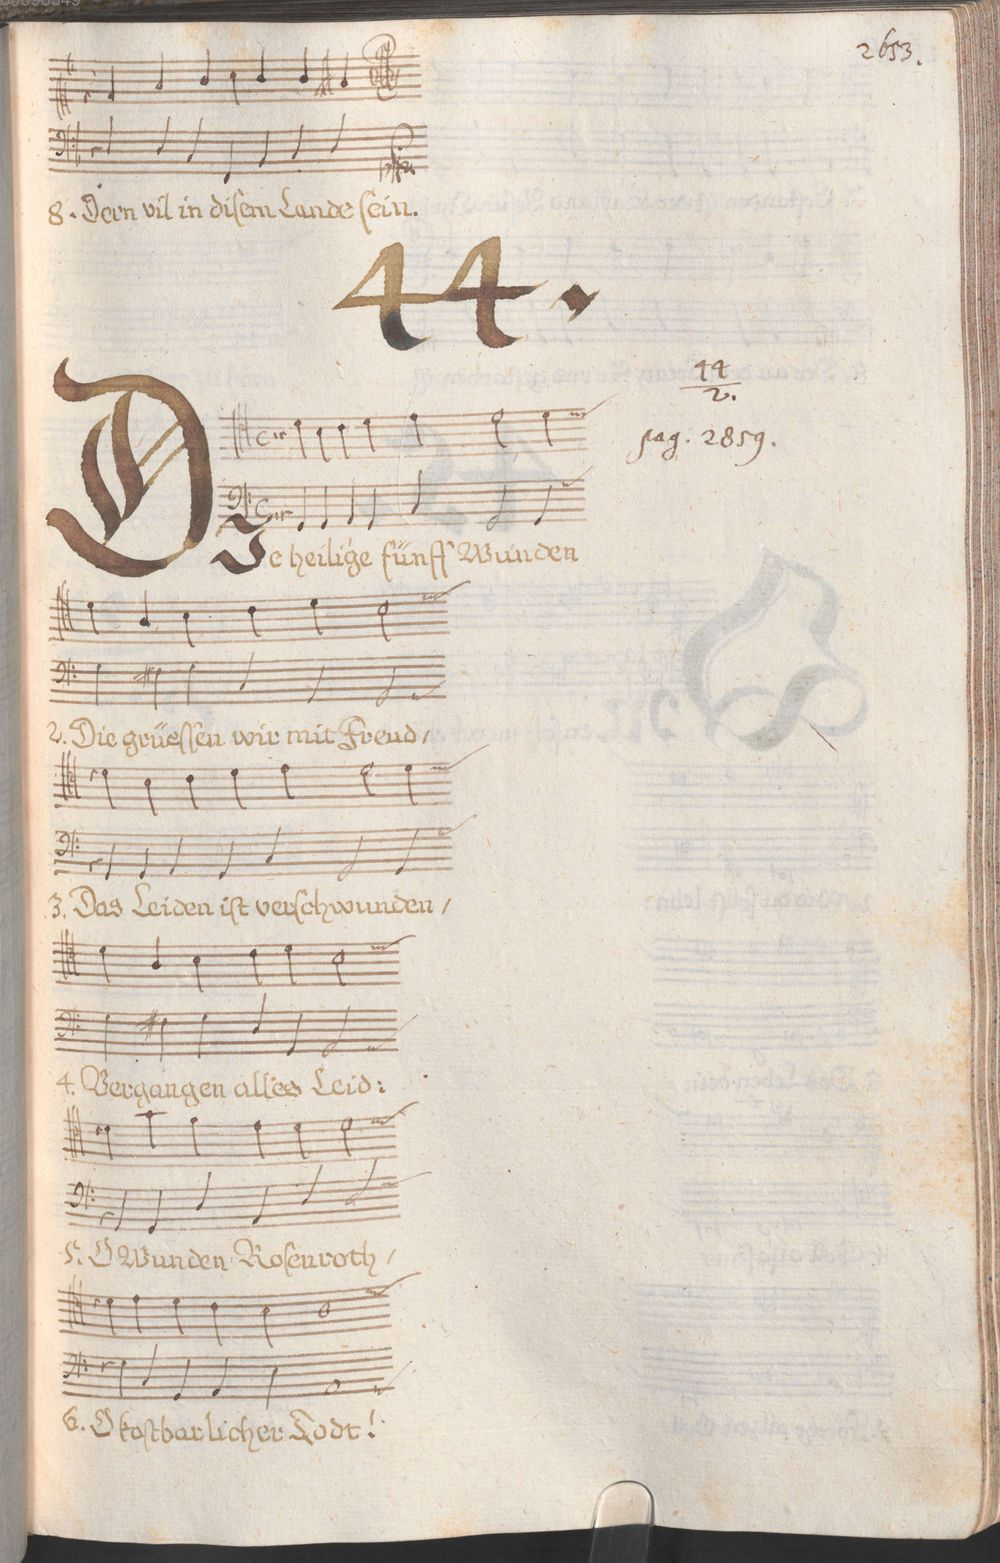 2653.
8. Dern vil in disem Lande sein.
44.
44
2.
pag. 2859.
Die heilige fünff Wunden
2. Die grüessen wir mit Freud /
3. Das Leiden ist verschwunden /
4. Vergangen alles Leid:
5. O Wunden Rosenroth /
6. O kostbarlicher Todt!